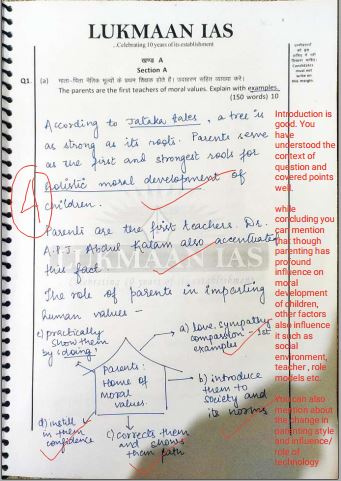 LUKMAAN IAS
...Celebrating 10 years of its establishment
खण्ड A
Section A
Q1. (a) माता-पिता नैतिक मूल्यों के प्रथम शिक्षक होते हैं। उदाहरण सहित व्याख्या करें।
The parents are the first teachers of moral values. Explain with examples.
(150 words) 10
According to Jataka tales, a tree is
as strong as its roots. Parents serve
as the first and strongest roots for
holistic moral development of
children.
4
Parents are the first teachers. Dr.
A.P.J Abdul Kalam also accentuated
this fact.
LUKMAAN IAS
The role of parents in imparting
human values -
e) practically
show them
by 'doing'
a) love, sympathy
compassion - set
examples
Parents:
Home of
moral
values.
b) introduce
them to
society and
its norms
d) instill
in them
confidence
c) corrects them
and shows
them path
Candidates
must not
write on
this margin
Introduction is
good. You
have
understood the
context of
question and
covered points
well.
while
concluding you
can mention
that though
parenting has
profound
influence on
moral
development
of children,
other factors
also influence
it such as
social
environment,
teacher, role
models etc.
You can also
mention about
the change in
parenting style
and influence/
role of
technology